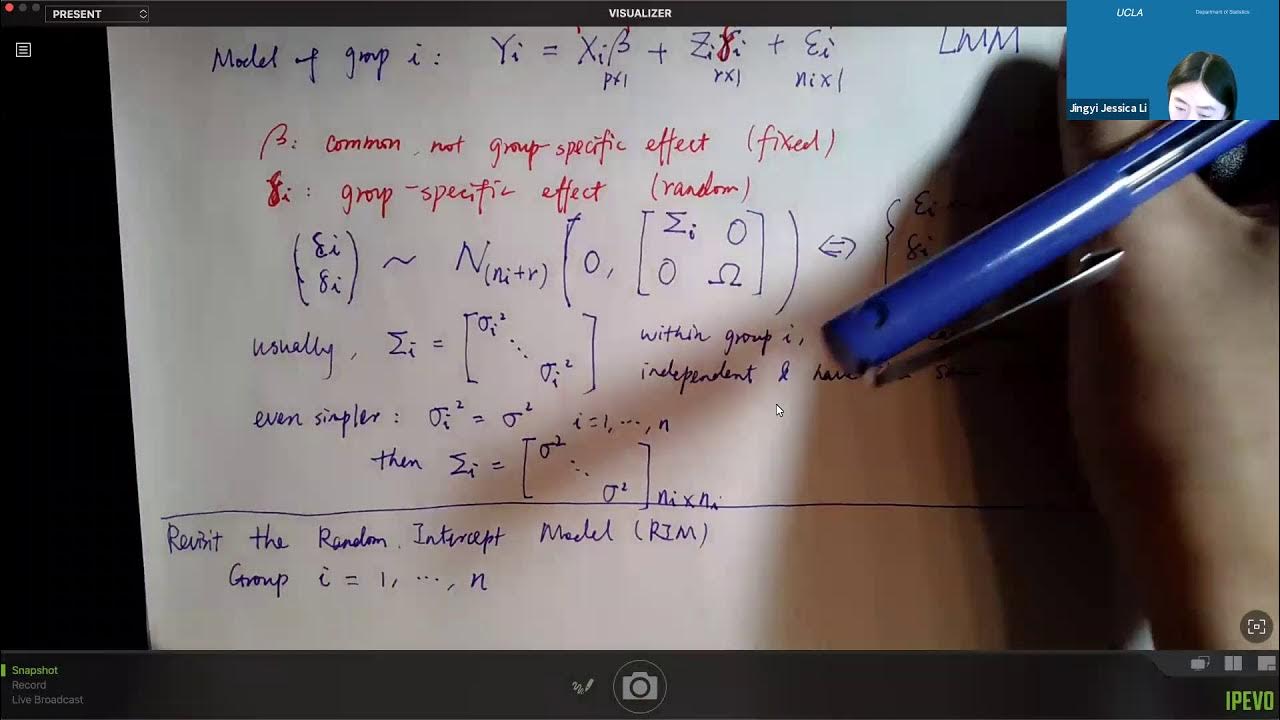 PRESENT
VISUALIZER
UCLA
Department of Statistics
Jingyi Jessica Li
Model of group i : Yi = Xi β + Zi γi + εi LMM
p×1 r×1 ni×1
β: common, not group-specific effect (fixed)
γi: group-specific effect (random)
(εi γi) ~ N(ni+r) (0, [Σi 0 0 Ω]) ⇔ { εi
γi
usually, Σi = [σi² ⋱ σi²] within group i,
independent & have
even simpler: σi² = σ² i=1, ⋯, n
then Σi = [σ² ⋱ σ²] ni×ni
Revisit the Random Intercept Model (RIM)
Group i = 1, ⋯, n
Snapshot
Record
Live Broadcast
IPEVO